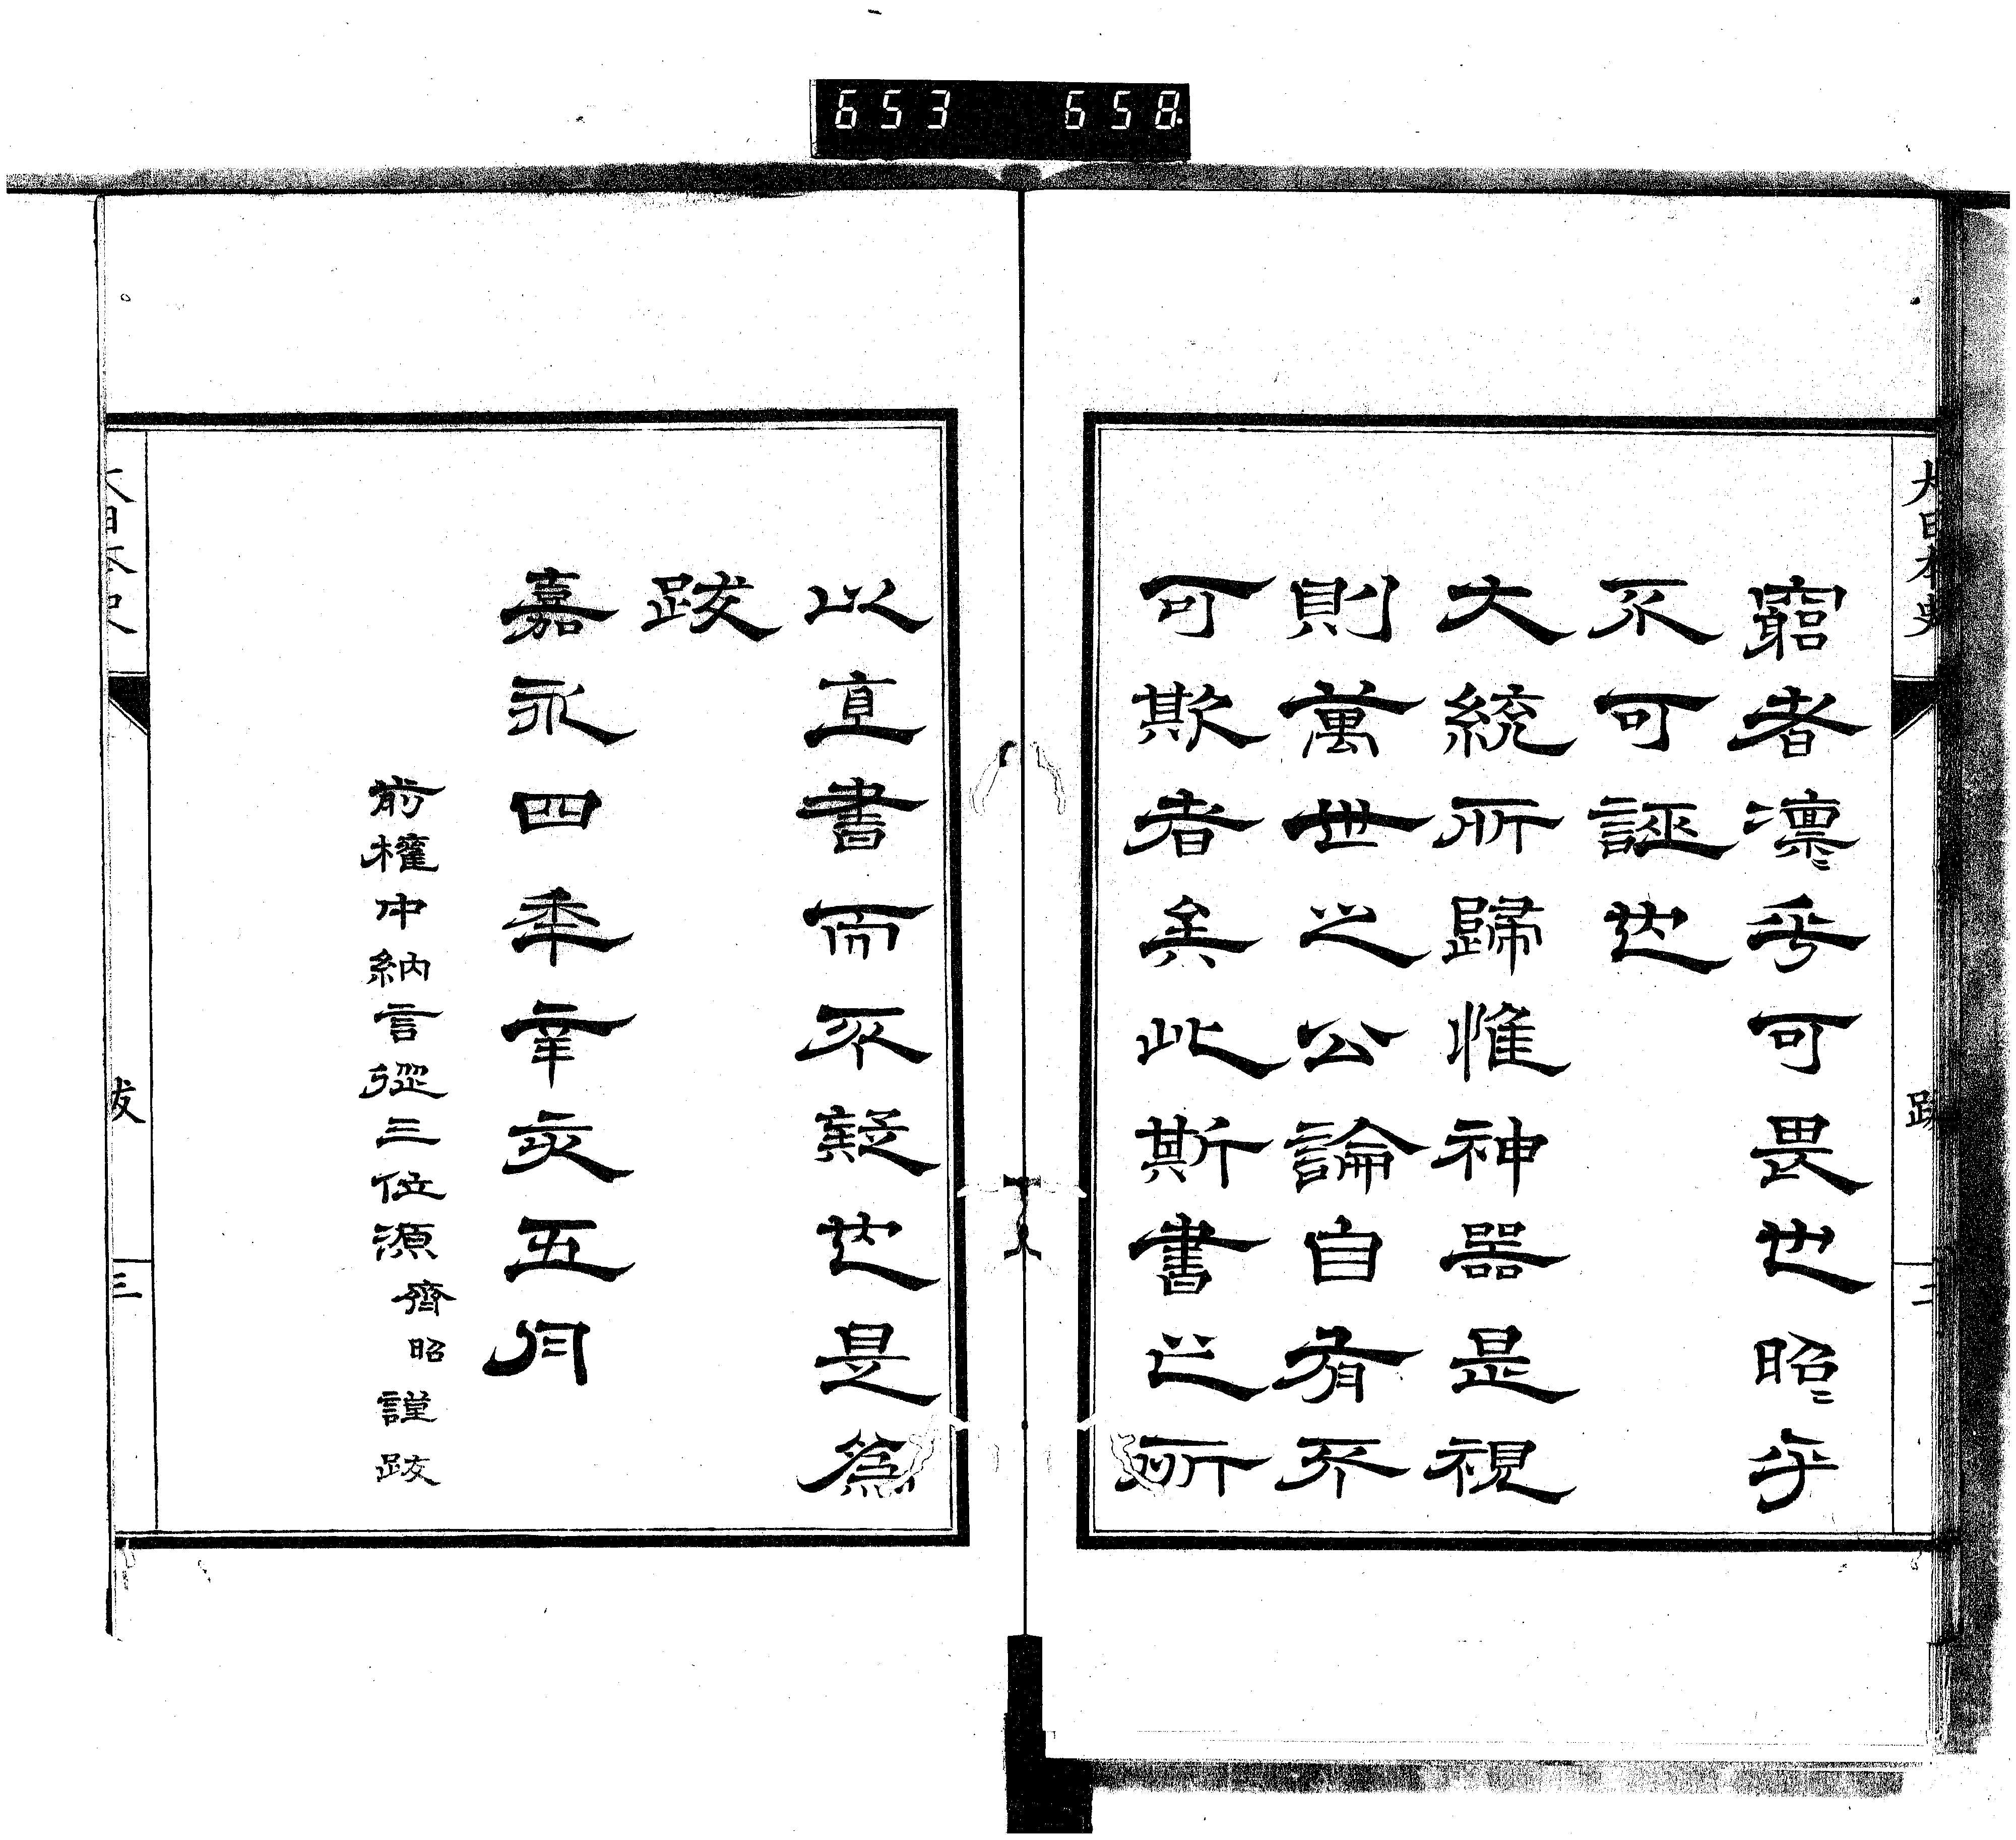 653 658
大日本史
跋
窮者凛〻乎可畏也昭〻乎
不可誣也
大統所歸惟神器是視
則萬世之公論自有不
可欺者矣此斯書之所
以直書而不疑也是爲
跋
嘉永四年辛亥五月
前權中納言從三位源齊昭謹跋
大日本史
跋
三